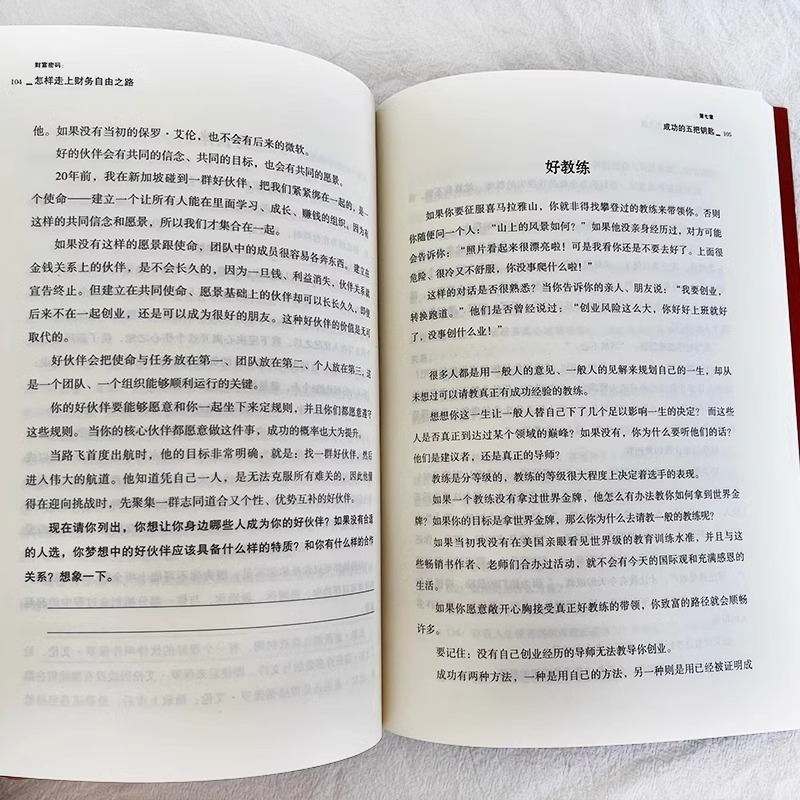 财富密码：
104 怎样走上财务自由之路
他。如果没有当初的保罗·艾伦，也不会有后来的微软。
好的伙伴会有共同的信念、共同的目标，也会有共同的愿景。
20年前，我在新加坡碰到一群好伙伴，把我们紧紧绑在一起的，是一
个使命——建立一个让所有人能在里面学习、成长、赚钱的组织。因为有
这样的共同信念和愿景，所以我们才集合在一起。
如果没有这样的愿景跟使命，团队中的成员很容易各奔东西。建立在
金钱关系上的伙伴，是不会长久的，因为一旦钱、利益消失，伙伴关系就
宣告终止。但建立在共同使命、愿景基础上的伙伴却可以长长久久，即便
后来不在一起创业，还是可以成为很好的朋友。这种好伙伴的价值是无可
取代的。
好伙伴会把使命与任务放在第一、团队放在第二、个人放在第三，这
是一个团队、一个组织能够顺利运行的关键。
你的好伙伴要能够愿意和你一起坐下来定规则，并且你们都愿意遵守
这些规则。当你的核心伙伴都愿意做这件事，成功的概率也大为提升。
当路飞首度出航时，他的目标非常明确，就是：找一群好伙伴，然后
进入伟大的航道。他知道凭自己一人，是无法克服所有难关的，因此他懂
得在迎向挑战时，先聚集一群志同道合又个性、优势互补的好伙伴。
现在请你列出，你想让你身边哪些人成为你的好伙伴？如果没有合适
的人选，你梦想中的好伙伴应该具备什么样的特质？和你有什么样的合作
关系？想象一下。
第七章
成功的五把钥匙 105
好教练
如果你要征服喜马拉雅山，你就非得找攀登过的教练来带领你。否则
你随便问一个人：“山上的风景如何？”如果他没亲身经历过，对方可能
会告诉你：“照片看起来很漂亮啦！可是我看你还是不要去好了。上面很
危险、很冷又不舒服，你没事爬什么啦！”
这样的对话是否很熟悉？当你告诉你的亲人、朋友说：“我要创业，
转换跑道。”他们是否曾经说过：“创业风险这么大，你好好上班就好
了，没事创什么业！”
很多人都是用一般人的意见、一般人的见解来规划自己的一生，却从
未想过可以请教真正有成功经验的教练。
想想你这一生让一般人替自己下了几个足以影响一生的决定？而这些
人是否真正到达过某个领域的巅峰？如果没有，你为什么要听他们的话？
他们是建议者，还是真正的导师？
教练是分等级的，教练的等级很大程度上决定着选手的表现。
如果一个教练没有拿过世界金牌，他怎么有办法教你如何拿到世界金
牌？如果你的目标是拿世界金牌，那么你为什么去请教一般的教练呢？
如果当初我没有在美国亲眼看见世界级的教育训练水准，并且与这
些畅销书作者、老师们合办过活动，就不会有今天的国际观和充满感恩的
生活。
如果你愿意敞开心胸接受真正好教练的带领，你致富的路径就会顺畅
许多。
要记住：没有自己创业经历的导师无法教导你创业。
成功有两种方法，一种是用自己的方法，另一种则是用已经被证明成